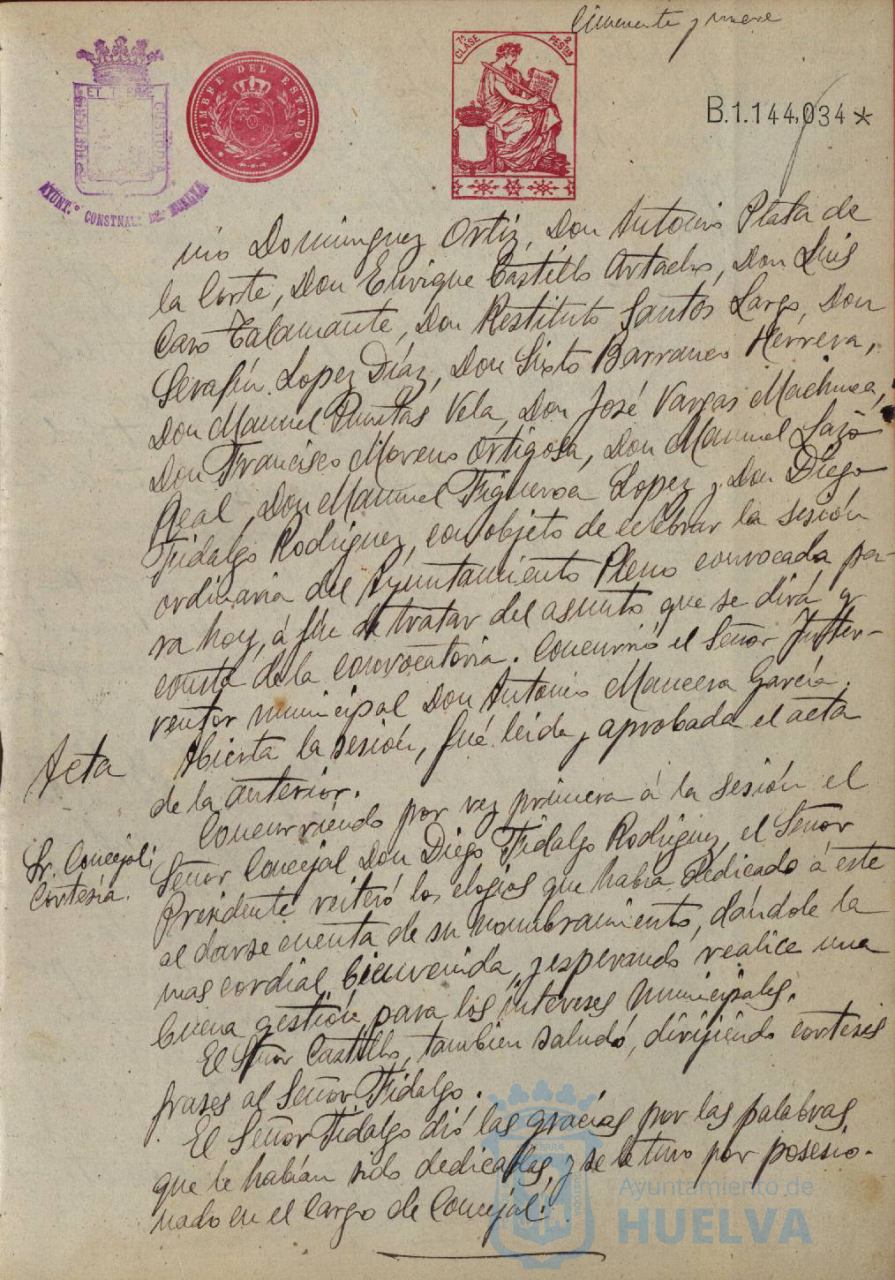 Cincuenta y nueve
7ª CLASE 2 PESTAS
TIMBRE DEL ESTADO
B.1.144,034*
AYUNT.º CONSTNAL. DE HUELVA
nio Dominguez Ortiz, Don Antonio Plata de
la Corte, Don Enrique Castillo Artacho, Don Luis
Caro Talamante, Don Restituto Santos Largo, Don
Serafín Lopez Díaz, Don Sixto Barranco Herrera,
Don Manuel Puntas Vela, Don José Vargas Machuca,
Don Francisco Moreno Ortigosa, Don Manuel Lazo
Real, Don Manuel Figueroa Lopez y Don Diego
Fidalgo Rodriguez, con objeto de celebrar la sesión
ordinaria del Ayuntamiento Pleno convocada pa-
ra hoy, á fin de tratar del asunto que se dirá y
consta de la convocatoria. Concurrió el Señor Inter-
ventor municipal Don Antonio Mancera García.
Acta
Abierta la sesión, fué leida y aprobada el acta
de la anterior.
Sr. Concejal:
Cortesía.
Concurriendo por vez primera á la sesión el
Señor Concejal Don Diego Fidalgo Rodriguez, el Señor
Presidente reiteró los elogios que había dedicado á este
al darse cuenta de su nombramiento, dándole la
mas cordial bienvenida, y esperando realice una
buena gestión para los intereses municipales.
El Señor Castillo, tambien saludó, dirigiendo corteses
frases al Señor Fidalgo.
El Señor Fidalgo dió las gracias por las palabras
que le habían sido dedicadas, y se le tuvo por posesio-
nado en el cargo de Concejal.
Ayuntamiento de
HUELVA